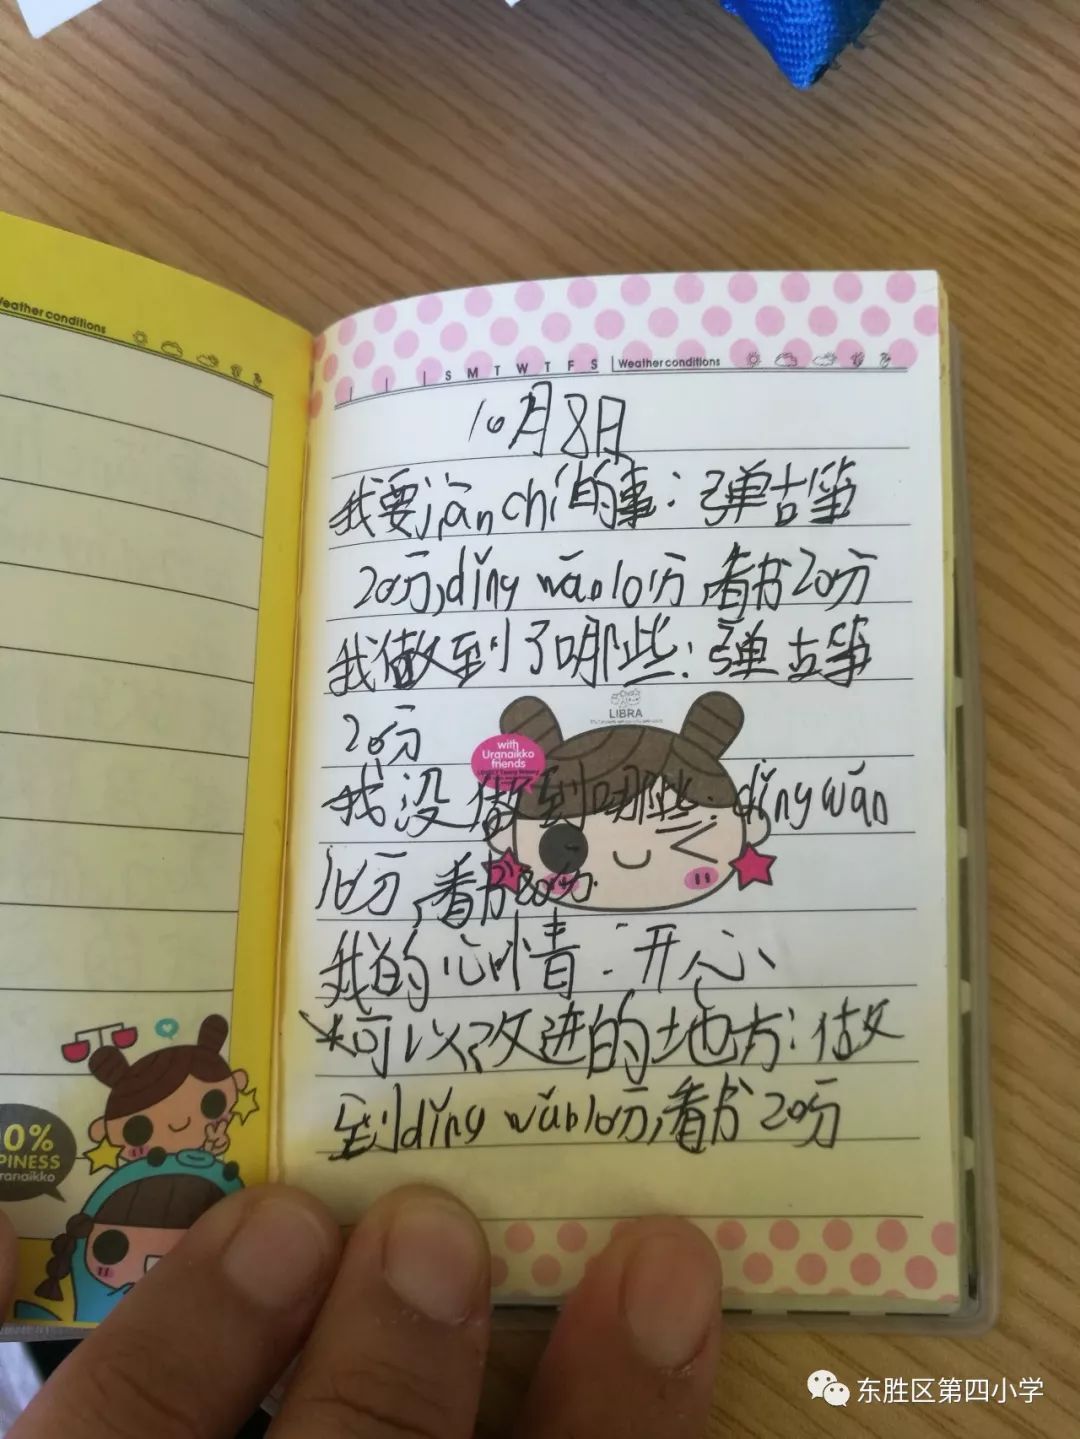 Weather conditions
S M T W T F S Weather conditions
10月8日
我要jiān chí的事：弹古筝
20分,dǐng wǎn10分,看书20分
我做到了哪些：弹古筝
LIBRA
20分
with
Uranaikko
friends
我没做到哪些：dǐng wǎn
10分,看书20分.
我的心情：开心、
可以改进的地方：做
到dǐng wǎn10分,看书20分
0%
PINESS
ranaikko
东胜区第四小学